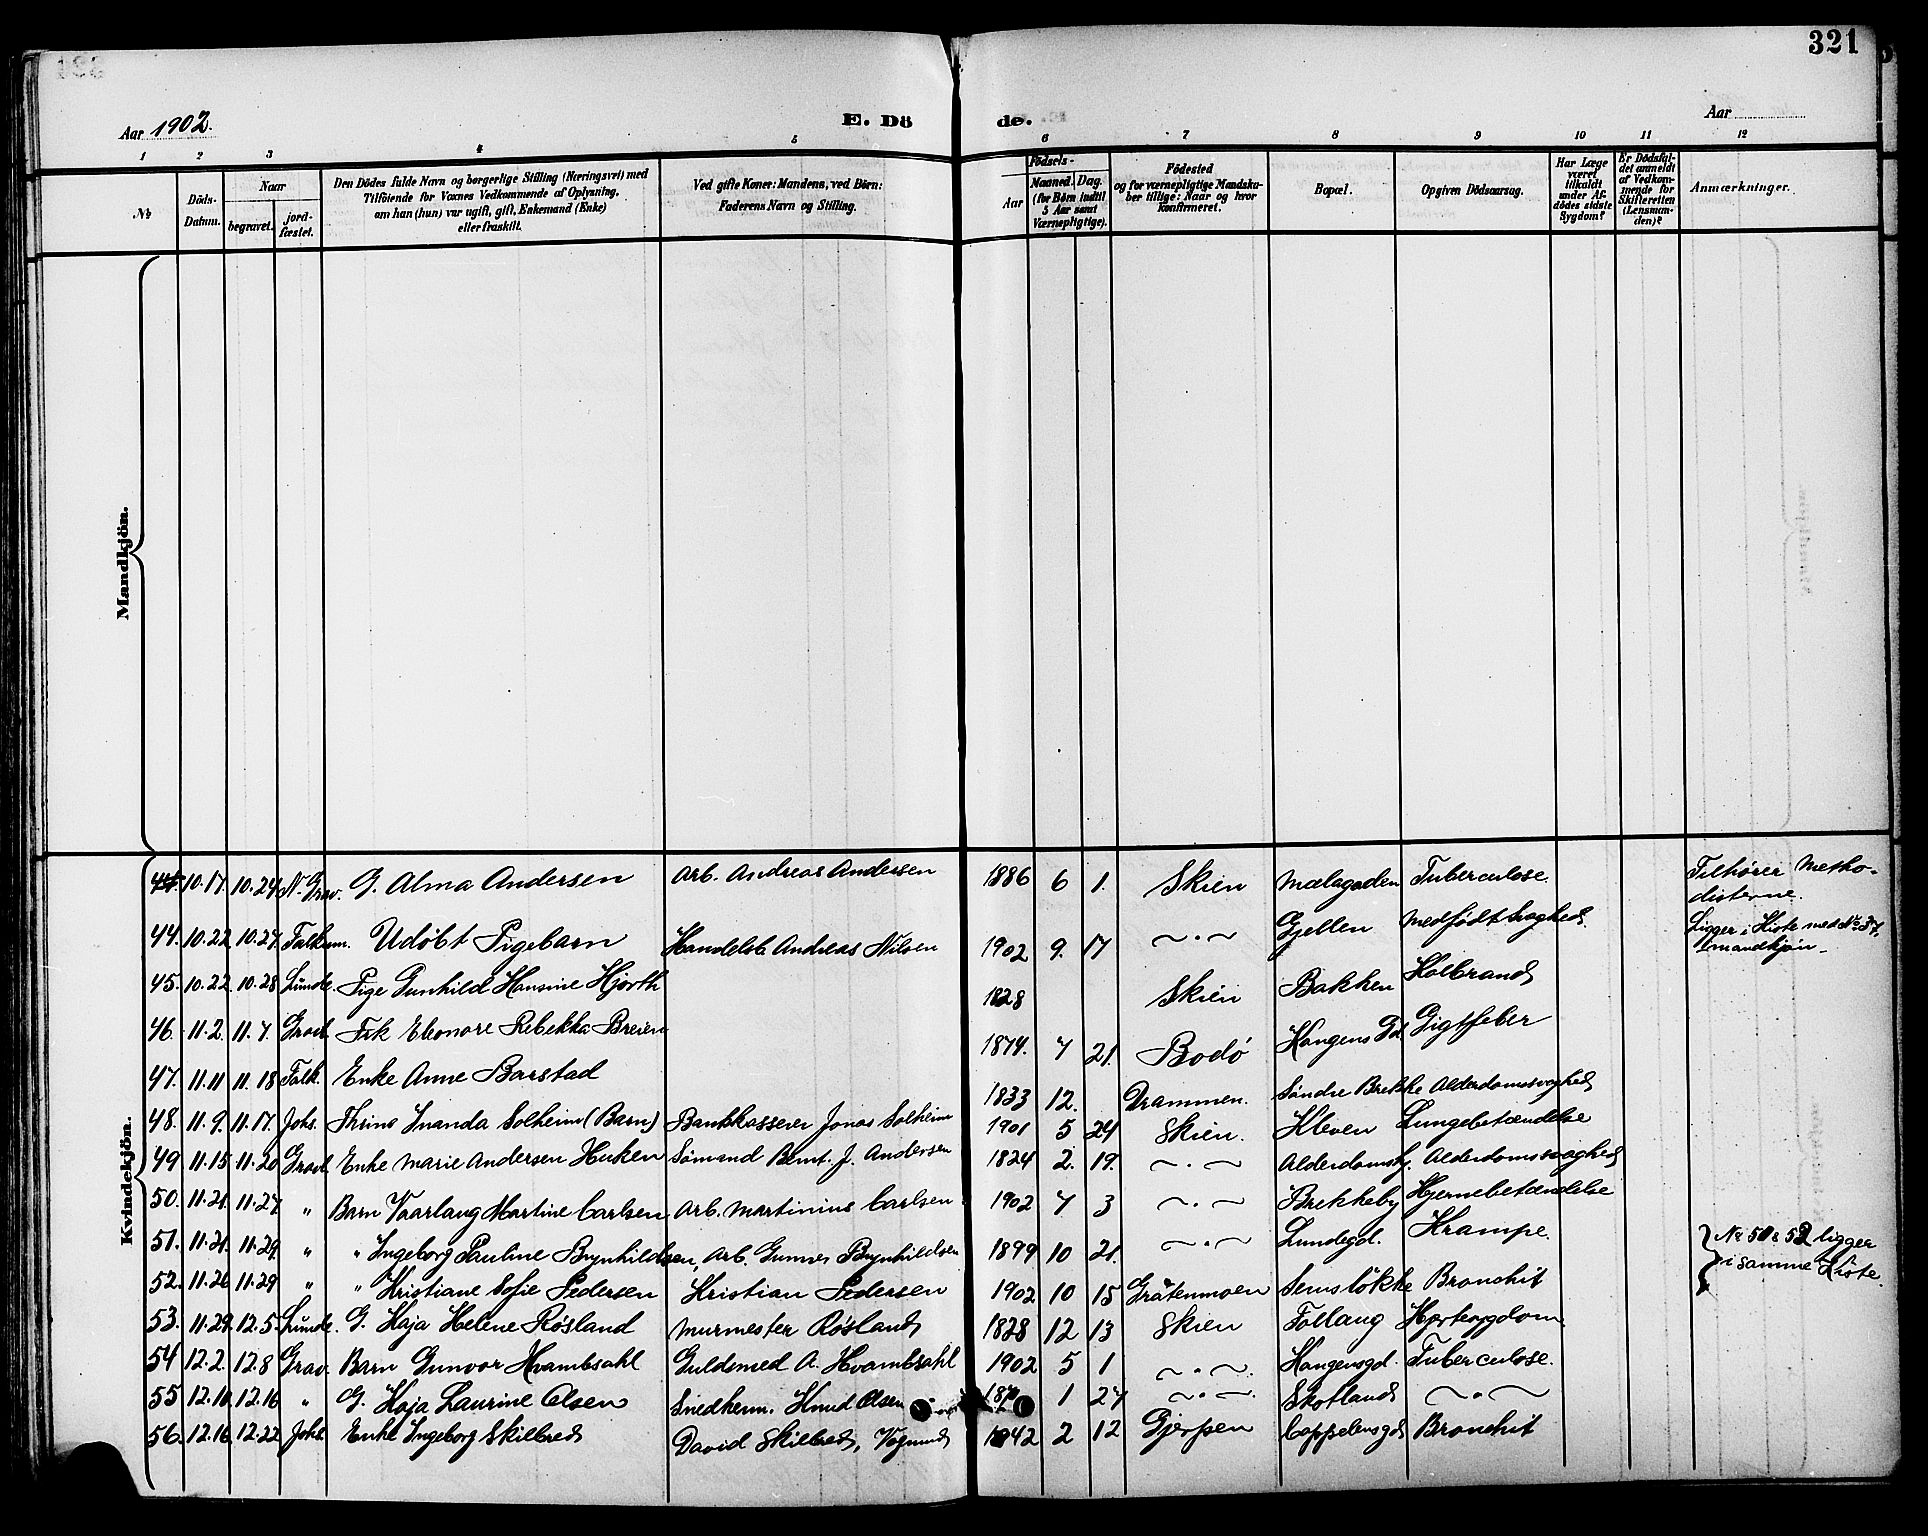 321
Aar 1902.
E. Dö
de.
Aar
1 2 3 4 5 6 7 8 9 10 11 12
№
Döds-
Datum.
Naar
begravet.
jord-
fæstet.
Den Dödes fulde Navn og borgerlige Stilling (Næringsvei) med
Tilföiende for Voxnes Vedkommende af Oplysning,
om han (hun) var ugift, gift, Enkemand (Enke)
eller fraskilt.
Ved gifte Koner: Mandens, ved Börn:
Faderens Navn og Stilling.
Födsels-
Aar
Maaned. Dag.
(for Börn indtil
5 Aar samt
Værnepligtige).
Födested
og for værnepligtige Mandska-
ber tillige: Naar og hvor
konfirmeret.
Bopæl.
Opgiven Dödsaarsag.
Har Læge
været
tilkaldt
under Af-
dödes sidste
Sygdom?
Er Dödsfal-
det anmeldt
af Vedkom-
mende for
Skifteretten
(Lensman-
den)?
Anmærkninger.
Mandkjön.
Kvindekjön.
10.17. 10.24 N. Grav. G. Alma Andersen Arb. Andreas Andersen 1886 6 1. Skien Mælagaden Tuberculose. Tilhører Metho-
disterne.
44. 10.22 10.27. Falkum. Udøbt Pigebarn Handelsb. Andreas Nilsen 1902 9. 17 ~·~ Gjellen Medfödt svaghed. Ligger i Kiste med № 37,
mandkjøn.
45. 10.22. 10.28 Lunde. Pige Gunhild Hansine Hjorth 1828 Skien Bakken Kolbrand
46. 11.2. 11.7. Gravl. Frk Eleonore Rebekka Breien 1874. 7 21. Bodö Hangens Gd. Gigtfeber
47. 11.11 11.18 Falk. Enke Anne Barstad 1833 12. Drammen. Søndre Brekke Alderdomssvaghed
48. 11.9. 11.17. Johs. Thrine Inanda Solheim (Barn) Bankkasserer Jonas Solheim 1901 5 24 Skien. Kleven Lungebetændelse
49 11.15 11.20 Gravl. Enke Marie Andersen Huken Sømand Bernt. J. Andersen 1824 2. 19. ~·~ Alderdomshj. Alderdomssvaghed
50. 11.21. 11.27 " Barn Vaarlaug Martine Carlsen Arb. Martinius Carlsen 1902 7 3 ~·~ Brekkeby Hjernebetændelse
51. 11.21. 11.29 " " Ingeborg Pauline Brynhildsen, Arb. Gunnes Brynhildsen 1899 10 21. ~·~ Lundegd. Krampe. № 51 & 52 ligger
i samme Kiste.
52. 11.26 11.29 " " Kristiane Sofie Pedersen Kristian Pedersen 1902 10 15 Gråtenmoen Semsløkke Bronchit
53. 11.29. 12.5. Lunde. G. Kaja Helene Røsland Murmester Røsland 1828 12 13 Skien Follaug Hjertesygdom.
54 12.2 12.8 Grav. Barn Gunvor Hvambsahl Guldsmed A. Hvambsahl 1902 5 1 ~·~ Hangensgd. Tuberculose.
55 12.10. 12.16 " G. Kaja Laurine Olsen Snedkerm. Knud Olsen 1 27 ~·~ Skotland ~"~
56. 12.16 12.22 Johs. Enke Ingeborg Skilbred David Skilbred, Vognmd 1842 2 12 Gjerpen Cappelensgd Bronchit